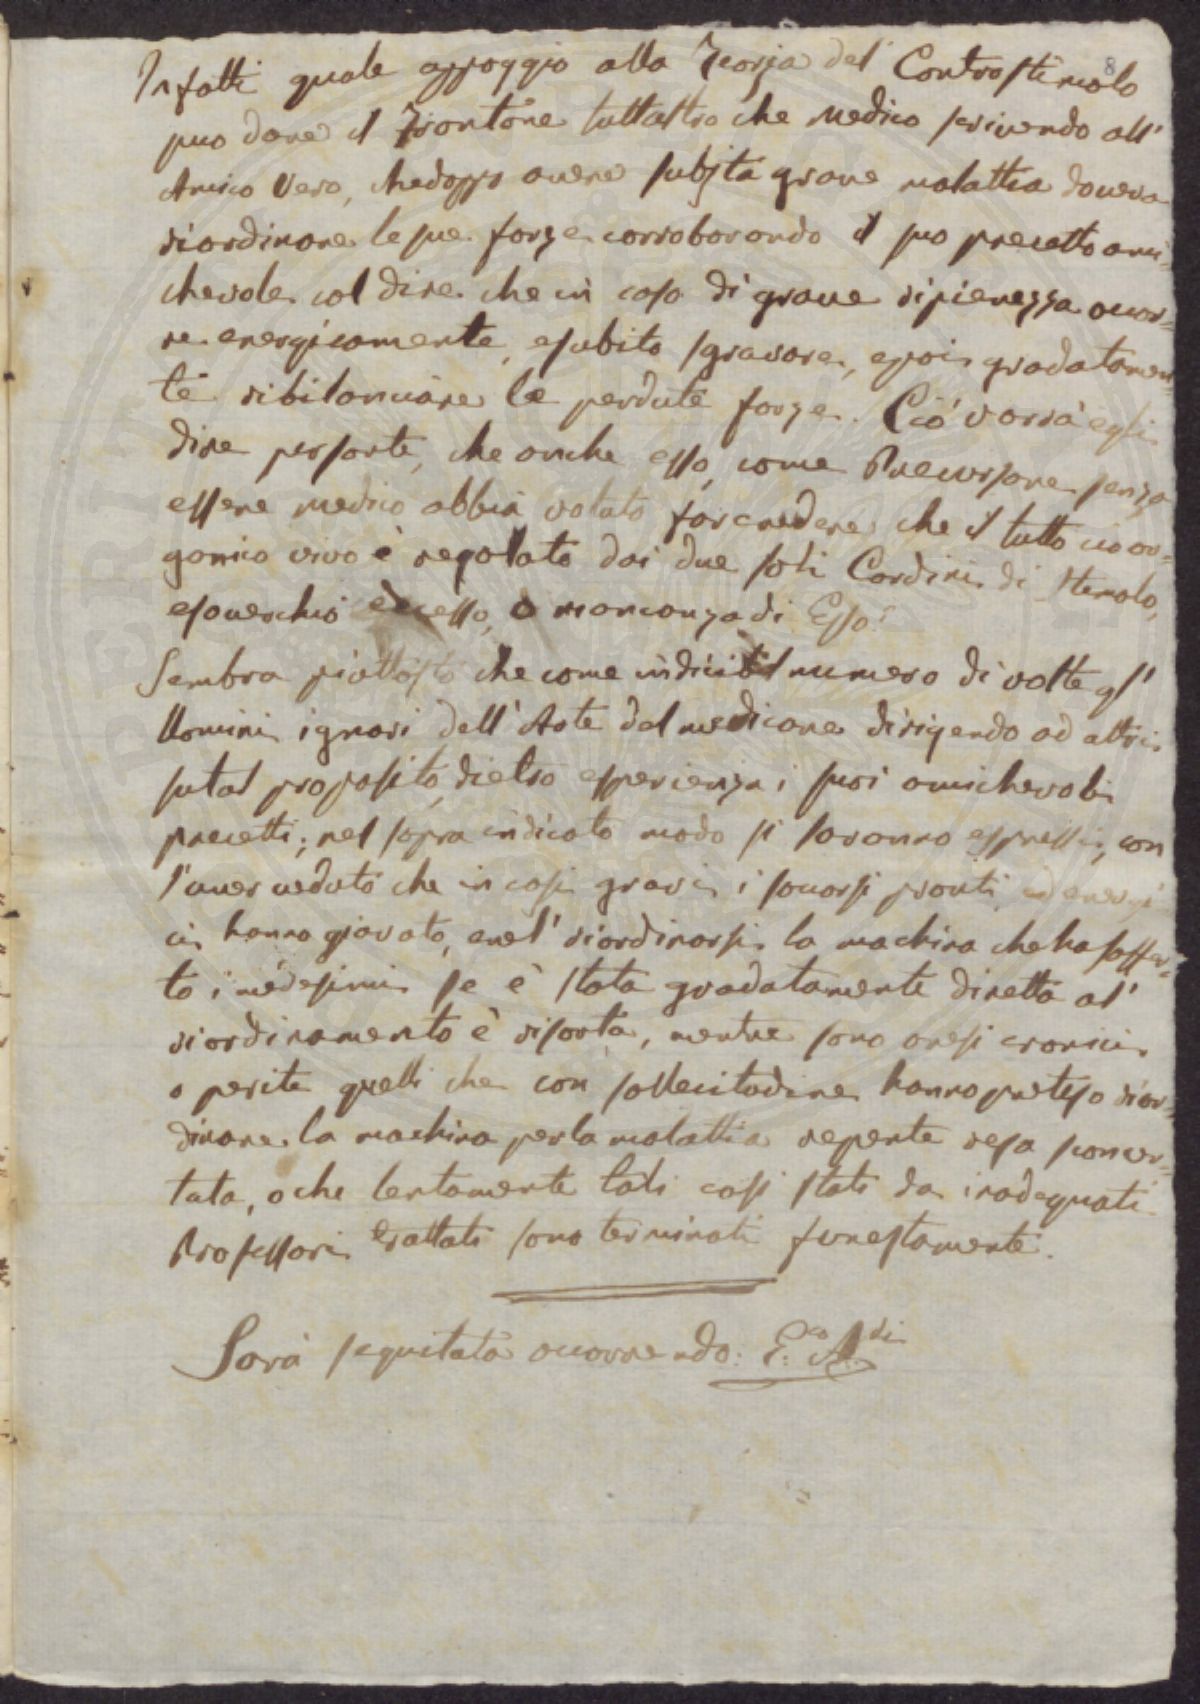 8
Infatti quale appoggio alla Teoria del Controstimolo
puo dare il Frontone tuttaltro che Medico scrivendo all'
Amico Vero, chedoppo avere subjta grave malattia doveva
riordinare le sue forze corroborando il suo precetto ami-
chevole col dire che in caso di grave ripienezza occor-
re energicamente, esubito sgravare, epoi gradatamen
te ribilanciare le perdute forze. Ciò vorrà egli
dire perforte, che anche esso, come Precursore senza
essere medico abbia voluto farcredere che il tutto cio or-
ganico vivo è regolato dai due soli Cardini di Stimolo,
esoverchio eccesso, o mancanza di Esso?
Sembra piuttosto che come indicibil numero di volte gl'
Uomini ignari dell'Arte del medicare dirigendo ad altri
sutal proposito, dietro esperienza i suoi amichevoli
precetti; nel sopra indicato modo si saranno espressi, con
l'aver veduto che in casi gravi i soccorsi pronti ed energi
ci hanno giovato, enel' riordinarsi la machina cheha soffer-
to i medesimi se è stata gradatamente diretta al'
riordinamento è risorta, mentre sono resi cronici
o perite quelli che con sollecitudine hannopreteso rior-
dinare la machina perla malattia repente resa sconcer-
tata, o che lentamente tali casi stati da inadequati
Professori trattati sono terminati funestamente.
Sarà seguitata occorrendo: